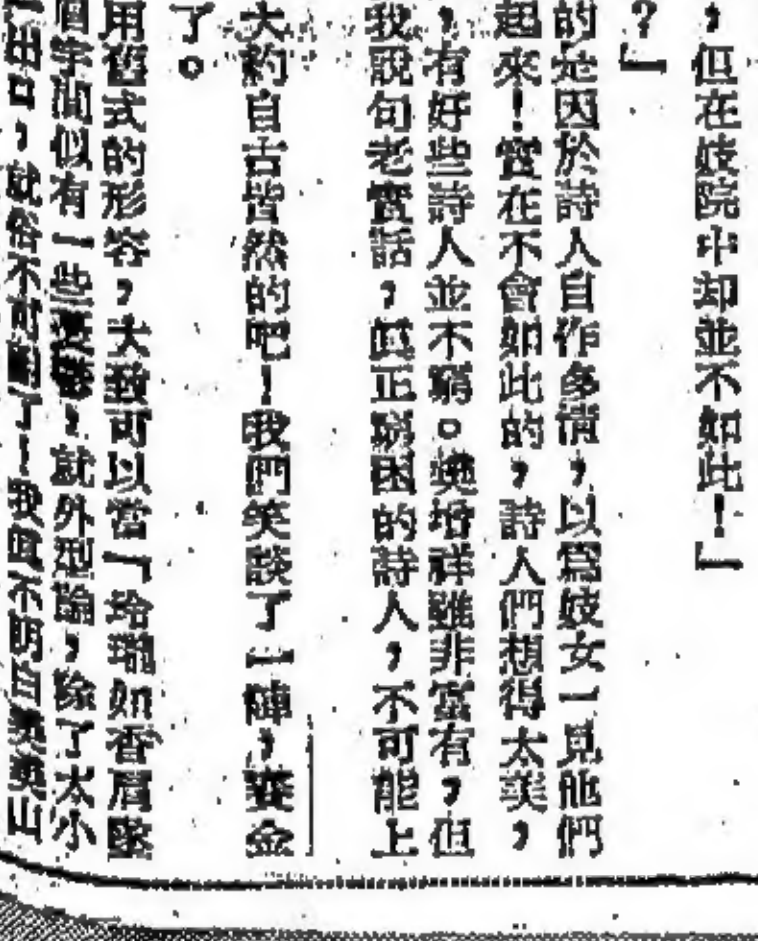 ，但在妓院中却並不如此！」
？」
的是因於詩人自作多情，以爲妓女一見他們
起來！實在不會如此的，詩人們想得太美，
，有好些詩人並不窮。堉祥雖非富有，但
我說句老實話，眞正窮困的詩人，不可能上
大約自古皆然的吧！我們笑談了一陣，賽金
了。
用舊式的形容，大致可以當「玲瓏如香扇墜
眉宇間似有一些，就外型論，除了太小
出口，就俗不可耐了！我眞不明白英山